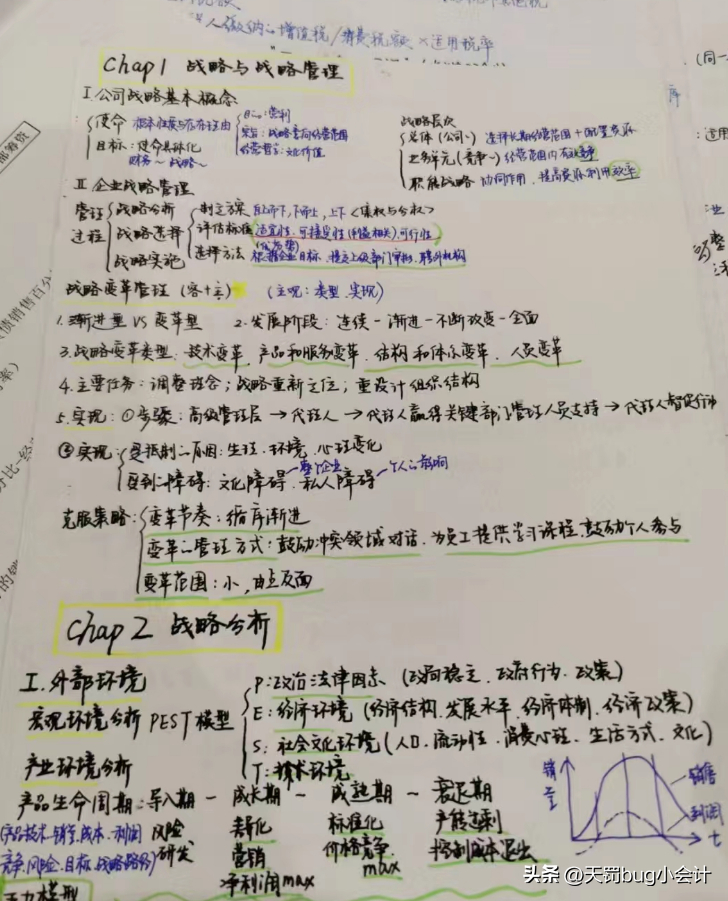 人缴纳的增值税/消费税额×适用税率
Chap 1 战略与战略管理
I.公司战略基本概念
使命 根本性质与存在理由
目的:营利
宗旨:战略意向经营范围
经营哲学:文化价值
目标:使命具体化
财务~ 战略~
战略层次
总体(公司~) 选择长期经营范围+配置资源
业务单元(竞争~) 经营范围内有效竞争
职能战略 协同作用,提高资源利用效率
II 企业战略管理
管理过程
战略分析
战略选择
战略实施
制定方案 自上而下,下而上,上下<集权与分权>
评估标准 适宜性,可接受性(利益相关),可行性
(优劣势)
选择方法 根据企业目标、提交上级部门审批、聘外机构
战略变革管理(客+主) (主观:类型、实现)
1.渐进型 VS 变革型 2.发展阶段:连续-渐进-不断改变-全面
3.战略变革类型:技术变革、产品和服务变革、结构和体系变革、人员变革
4.主要任务:调整理念;战略重新定位;重设计组织结构
5.实现:①步骤:高级管理层→代理人→代理人赢得关键部门管理人员支持→代理人督促行动
②实现:
受抵制的原因:生理、环境、心理变化
受到的障碍:文化障碍、私人障碍
整个企业
个人的影响
克服策略:
变革节奏:循序渐进
变革的管理方式:鼓励冲突领域对话、为员工提供学习课程、鼓励个人参与
变革范围:小,由点及面
Chap 2 战略分析
I.外部环境
宏观环境分析 PEST模型
P:政治法律因素(政局稳定、政府行为、政策)
E:经济环境(经济结构、发展水平、经济体制、经济政策)
S:社会文化环境(人口、流动性、消费心理、生活方式、文化)
T:技术环境
产业环境分析
产品生命周期:导入期-成长期-成熟期-衰退期
(产品技术、销量、成本、利润
竞争、风险、目标、战略路径)
风险 差异化 标准化 产能过剩
研发 营销 价格竞争 控制成本退出
净利润max max
销量
销售
利润
t
五力模型
头条 @天罚bug小会计